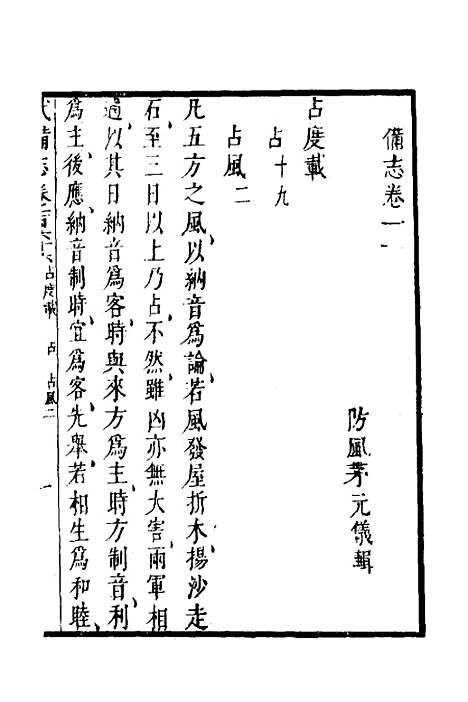 備志卷一
防風茅元儀輯
占度載
占十九
占風二
凡五方之風以納音爲論若風發屋折木揚沙走
石至三日以上乃占不然雖凶亦無大害兩軍相
遇以其日納音爲客時與來方爲主時方制音利
爲主後應納音制時宜爲客先舉若相生爲和睦
武備志卷一百六十六 占度載 占 占風二 一